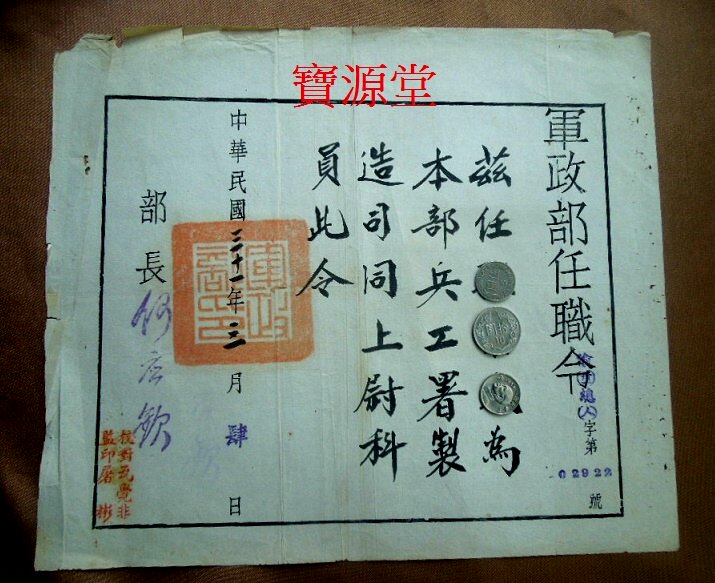 寶源堂
軍政部任職令
字第
02922
號
茲任
為
本部兵工署製
造司同上尉科
員此令
中華民國三十一年三月肆日
部長何應欽
校對 覺非
監印屠彬